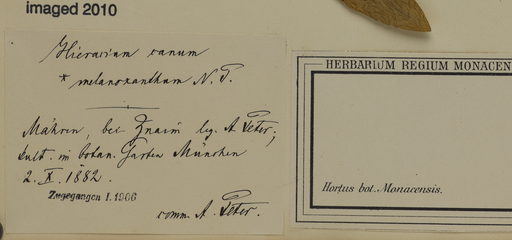 imaged 2010
Hieracium canum
* melanoxanthum N. P.
Mähren, bei Znaim leg. A. Peter;
kult. im botan. Garten München
2. X. 1882.
Zugegangen I. 1906
comm. A. Peter.
HERBARIUM REGIUM MONACEN
Hortus bot. Monacensis.